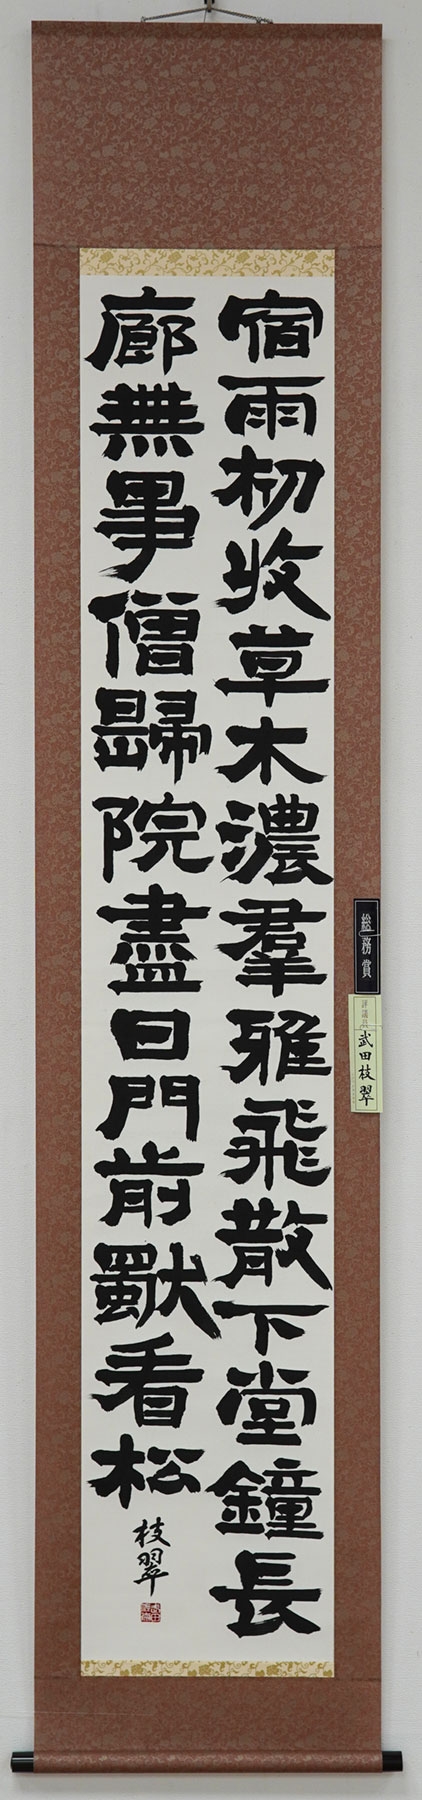 宿雨初收草木濃羣雅飛散下堂鐘長
廊無事僧歸院盡日門前獨看松
枝翠
総務賞
評議員
武田枝翠